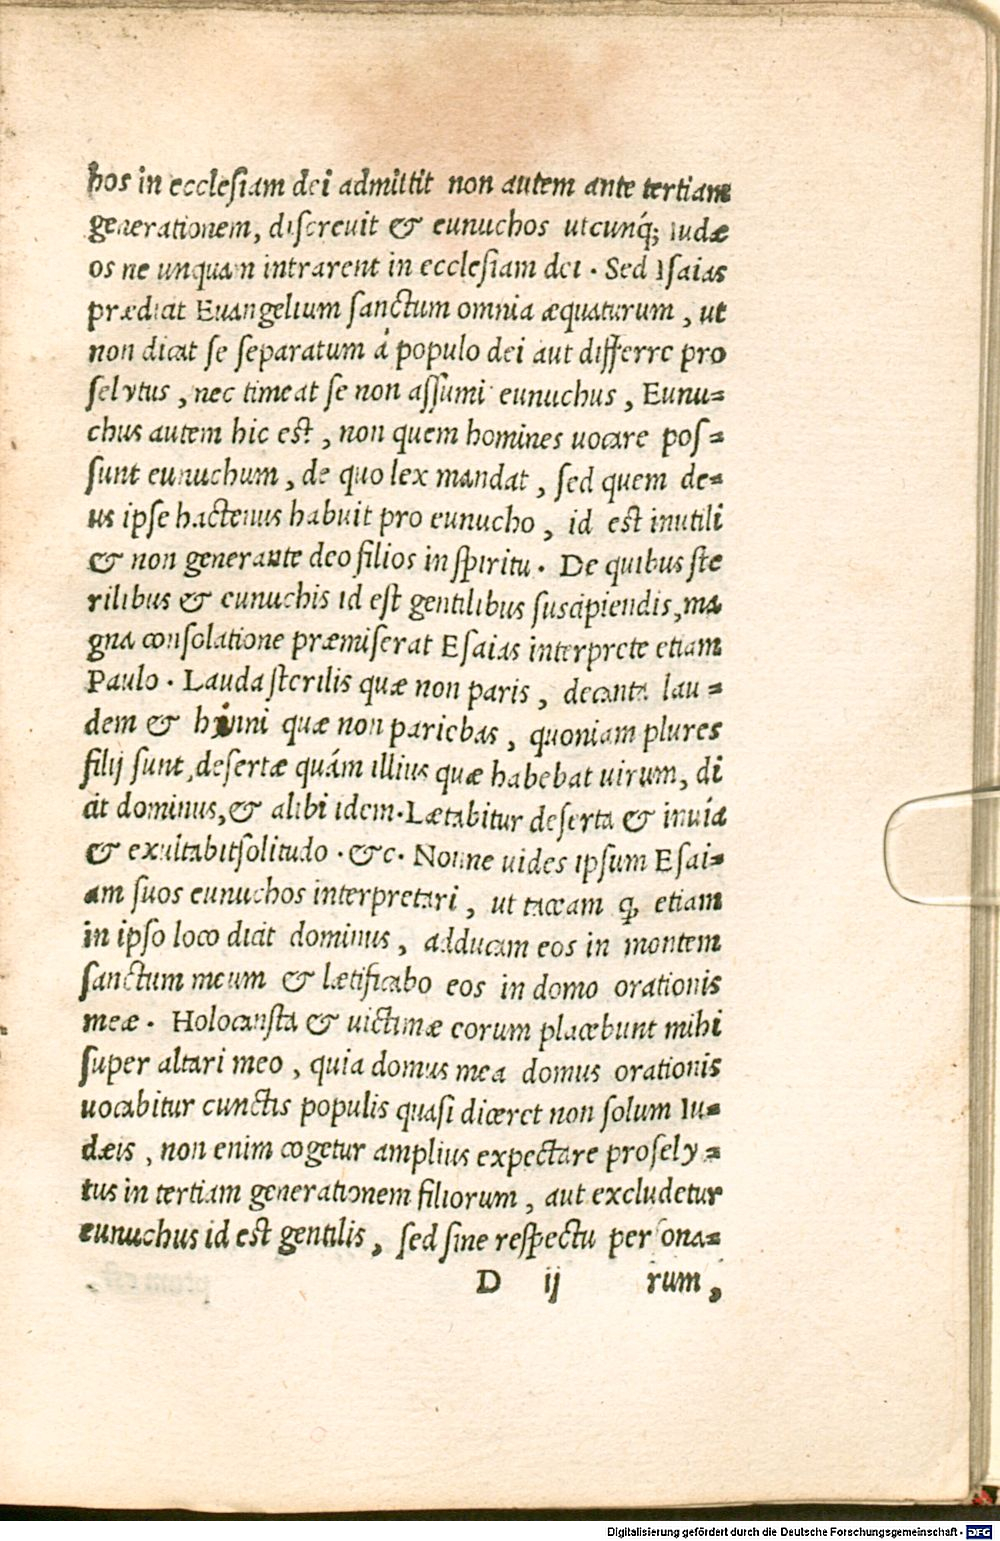 hos in ecclesiam dei admittit non autem ante tertiam
generationem, discrevit & eunuchos utcunq́; Iudæ
os ne unquam intrarent in ecclesiam dei. Sed Isaias
prædicat Euangelium sanctum omnia æquaturum, ut
non dicat se separatum á populo dei aut differre pro
selytus, nec timeat se non assumi eunuchus, Eunu=
chus autem hic est, non quem homines uocare pos=
sunt eunuchum, de quo lex mandat, sed quem de=
us ipse hactenus habuit pro eunucho, id est inutili
& non generante deo filios in spiritu. De quibus ste
rilibus & eunuchis id est gentilibus suscipiendis, ma
gna consolatione præmiserat Esaias interprete etiam
Paulo. Lauda sterilis quæ non paris, decanta lau=
dem & hinni quæ non pariebas, quoniam plures
filij sunt, desertæ quám illius quæ habebat uirum, di
cit dominus, & alibi idem. Lætabitur deserta & inuia
& exultabit solitudo. &c. Nonne uides ipsum Esai=
am suos eunuchos interpretari, ut taceam q, etiam
in ipso loco dicit dominus, adducam eos in montem
sanctum meum & lætificabo eos in domo orationis
meæ. Holocausta & uictimæ eorum placebunt mihi
super altari meo, quia domus mea domus orationis
uocabitur cunctis populis quasi diceret non solum Iu=
dæis, non enim cogetur amplius expectare prosely=
tus in tertiam generationem filiorum, aut excludetur
eunuchus id est gentilis, sed sine respectu persona=
D ij rum,
Digitalisierung gefördert durch die Deutsche Forschungsgemeinschaft - DFG